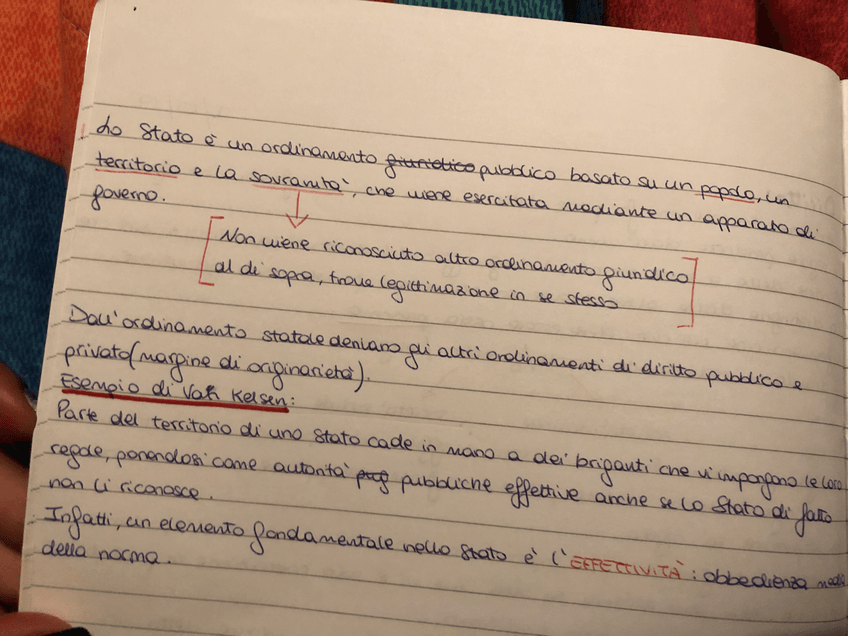 Lo Stato è un ordinamento giuridico pubblico basato su un popolo, un
territorio e la sovranità, che viene esercitata mediante un apparato di
governo.
Non viene riconosciuto altro ordinamento giuridico
al di sopra, trova legittimazione in se stesso
Dall'ordinamento statale derivano gli altri ordinamenti di diritto pubblico e
privato (margine di originarietà).
Esempio di Van Kelsen:
Parte del territorio di uno Stato cade in mano a dei briganti che vi impongono le loro
regole, ponendosi come autorità pubbliche effettive anche se lo Stato di fatto
non li riconosce.
Infatti, un elemento fondamentale nello Stato è l'EFFETTIVITÀ: obbedienza
della norma.